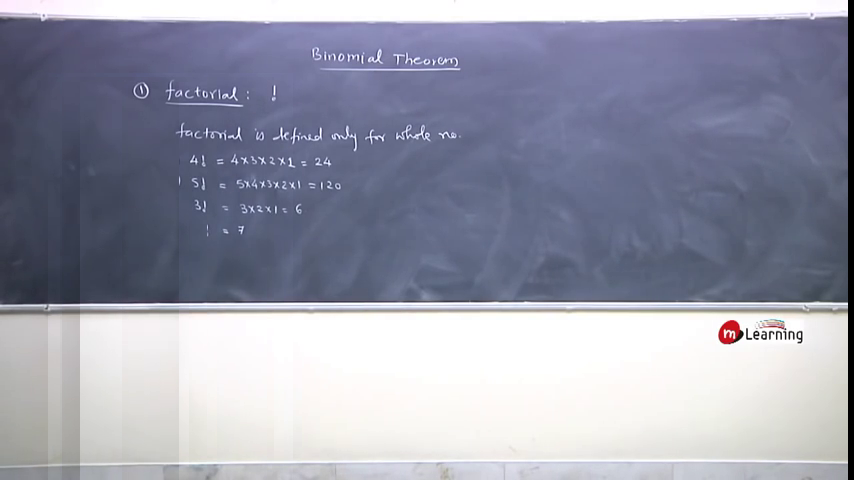 Binomial Theorem
① factorial : !
factorial is defined only for whole no.
4! = 4×3×2×1 = 24
5! = 5×4×3×2×1 = 120
3! = 3×2×1 = 6
! = 7
m Learning